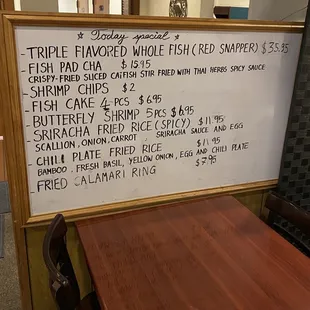 Today special
- TRIPLE FLAVORED WHOLE FISH (RED SNAPPER) $35.95
- FISH PAD CHA $15.95
CRISPY-FRIED SLICED CATFISH STIR FRIED WITH THAI HERBS SPICY SAUCE
- SHRIMP CHIPS $2
- FISH CAKE 4 PCS $6.95
- BUTTERFLY SHRIMP 5 PCS $6.95
- SRIRACHA FRIED RICE (SPICY) $11.95
SCALLION, ONION, CARROT, SRIRACHA SAUCE AND EGG
- CHILI PLATE FRIED RICE $11.95
BAMBOO, FRESH BASIL, YELLOW ONION, EGG AND CHILI PLATE
FRIED CALAMARI RING $7.95